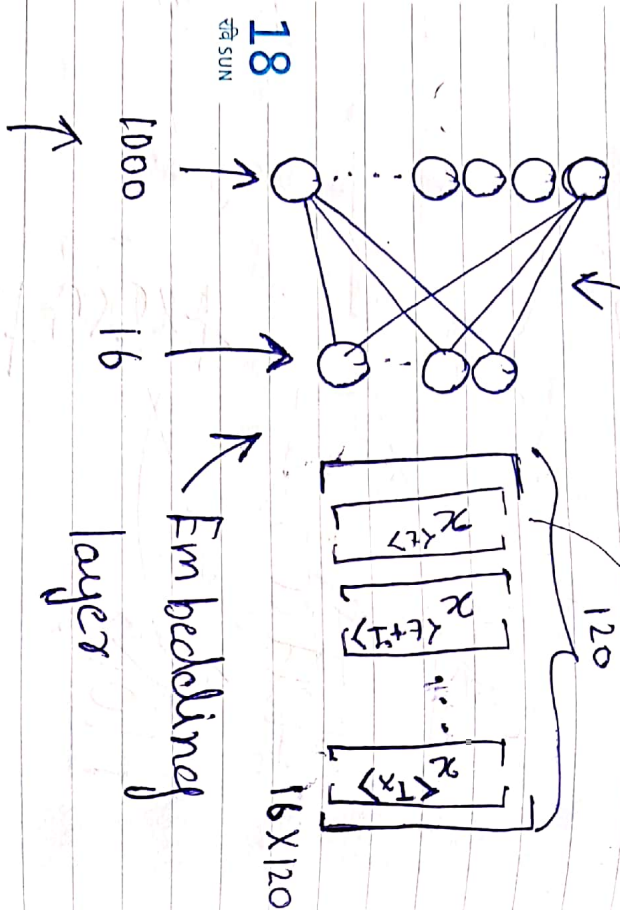 18
रवि SUN
1000
16
Embedding
layer
120
x<t>
x<t+1>
...
x<Tx>
16X120